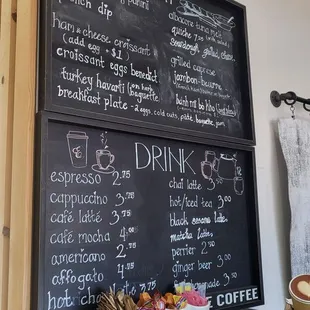 french dip
ham & cheese croissant
(add egg + $1)
croissant eggs benedict
turkey havarti
breakfast plate - 2 eggs, cold cuts, pate, baguette
albacore tuna melt
quiche
sourdough grilled cheese
grilled caprese
jambon-beurre
bánh mì bò kho
DRINK
espresso 2.75
cappuccino 3.75
café latté 3.75
café mocha 4.00
americano 2.75
affogato 4.75
hot
chai latte 3.75
hot/iced tea 3.00
black sesame latte
matcha latte
perrier 2.50
ginger beer 3.00
3.50
COFFEE